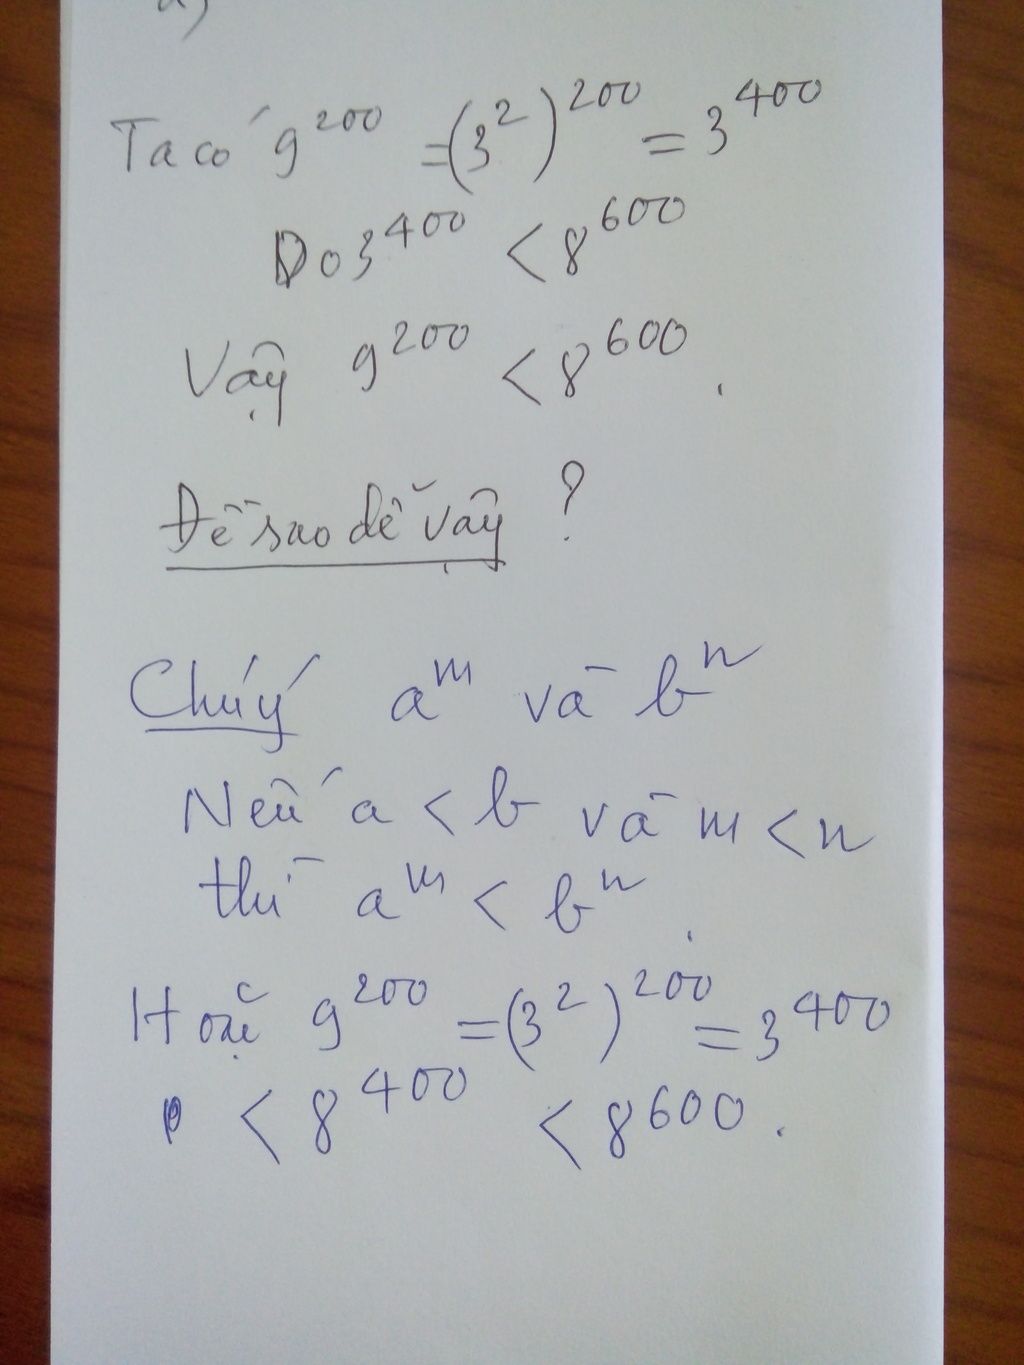 Ta có 9²⁰⁰ = (3²)²⁰⁰ = 3⁴⁰⁰
Do 3⁴⁰⁰ < 8⁶⁰⁰
Vậy 9²⁰⁰ < 8⁶⁰⁰.
Đề sao dễ vậy ?
Chú ý aᵐ và bⁿ
Nếu a < b và m < n
thì aᵐ < bⁿ.
Hoặc 9²⁰⁰ = (3²)²⁰⁰ = 3⁴⁰⁰
< 8⁴⁰⁰ < 8⁶⁰⁰.